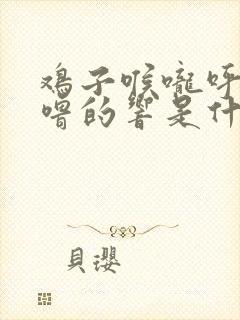 鸡子喉嚨呼
噜的響是什
貝瓔